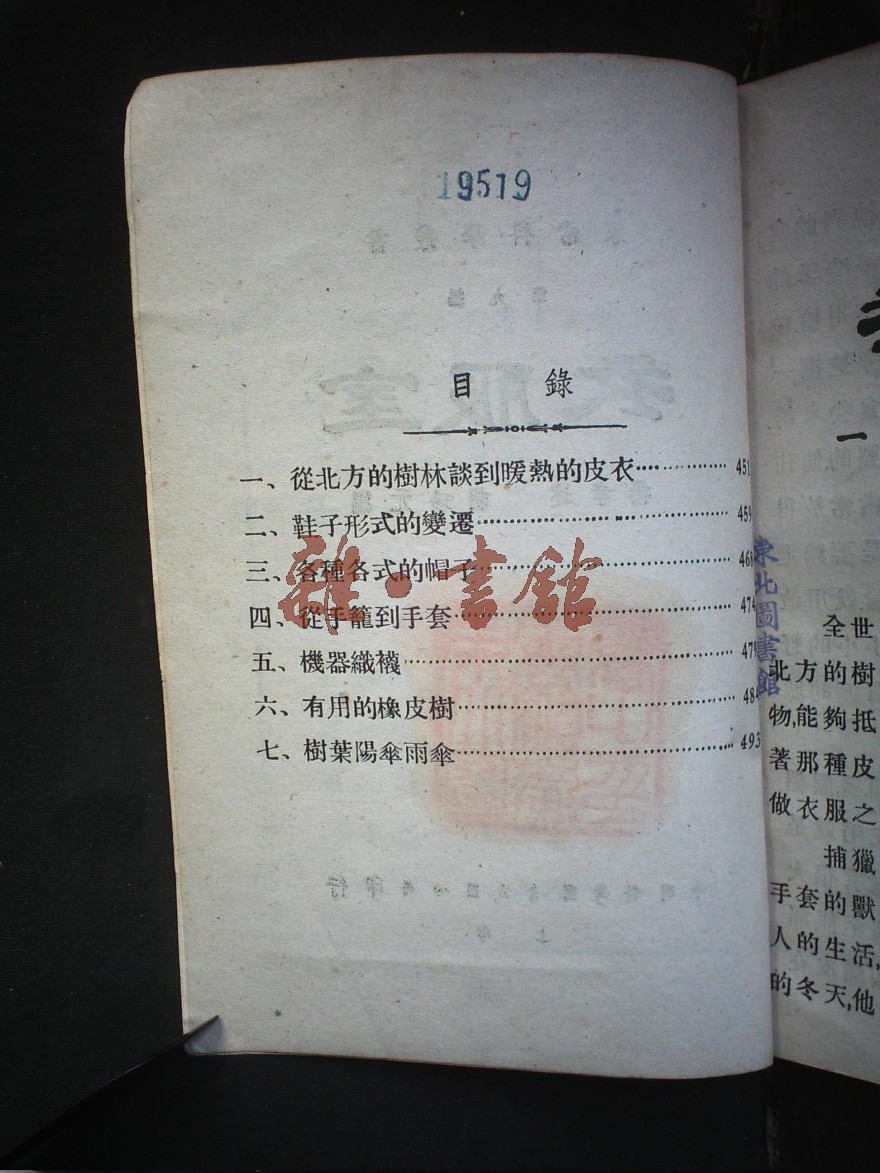 19519
目 錄
一、從北方的樹林談到暖熱的皮衣 451
二、鞋子形式的變遷 459
三、各種各式的帽子 468
四、從手籠到手套 474
五、機器織襪 479
六、有用的橡皮樹 484
七、樹葉陽傘雨傘 493
雜·書館
東北圖書館
一
全世
北方的樹
物,能夠抵
著那種皮
做衣服之
捕獵
手套的獸
人的生活,
的冬天,他